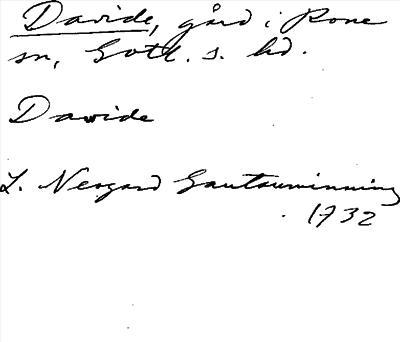 Davide, gård i Rone
sn, Gotl. s. hd.
Davide
L. Neogard Gautauminning
1732